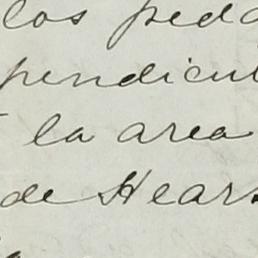 los peda
pendicul
la area
de Hears